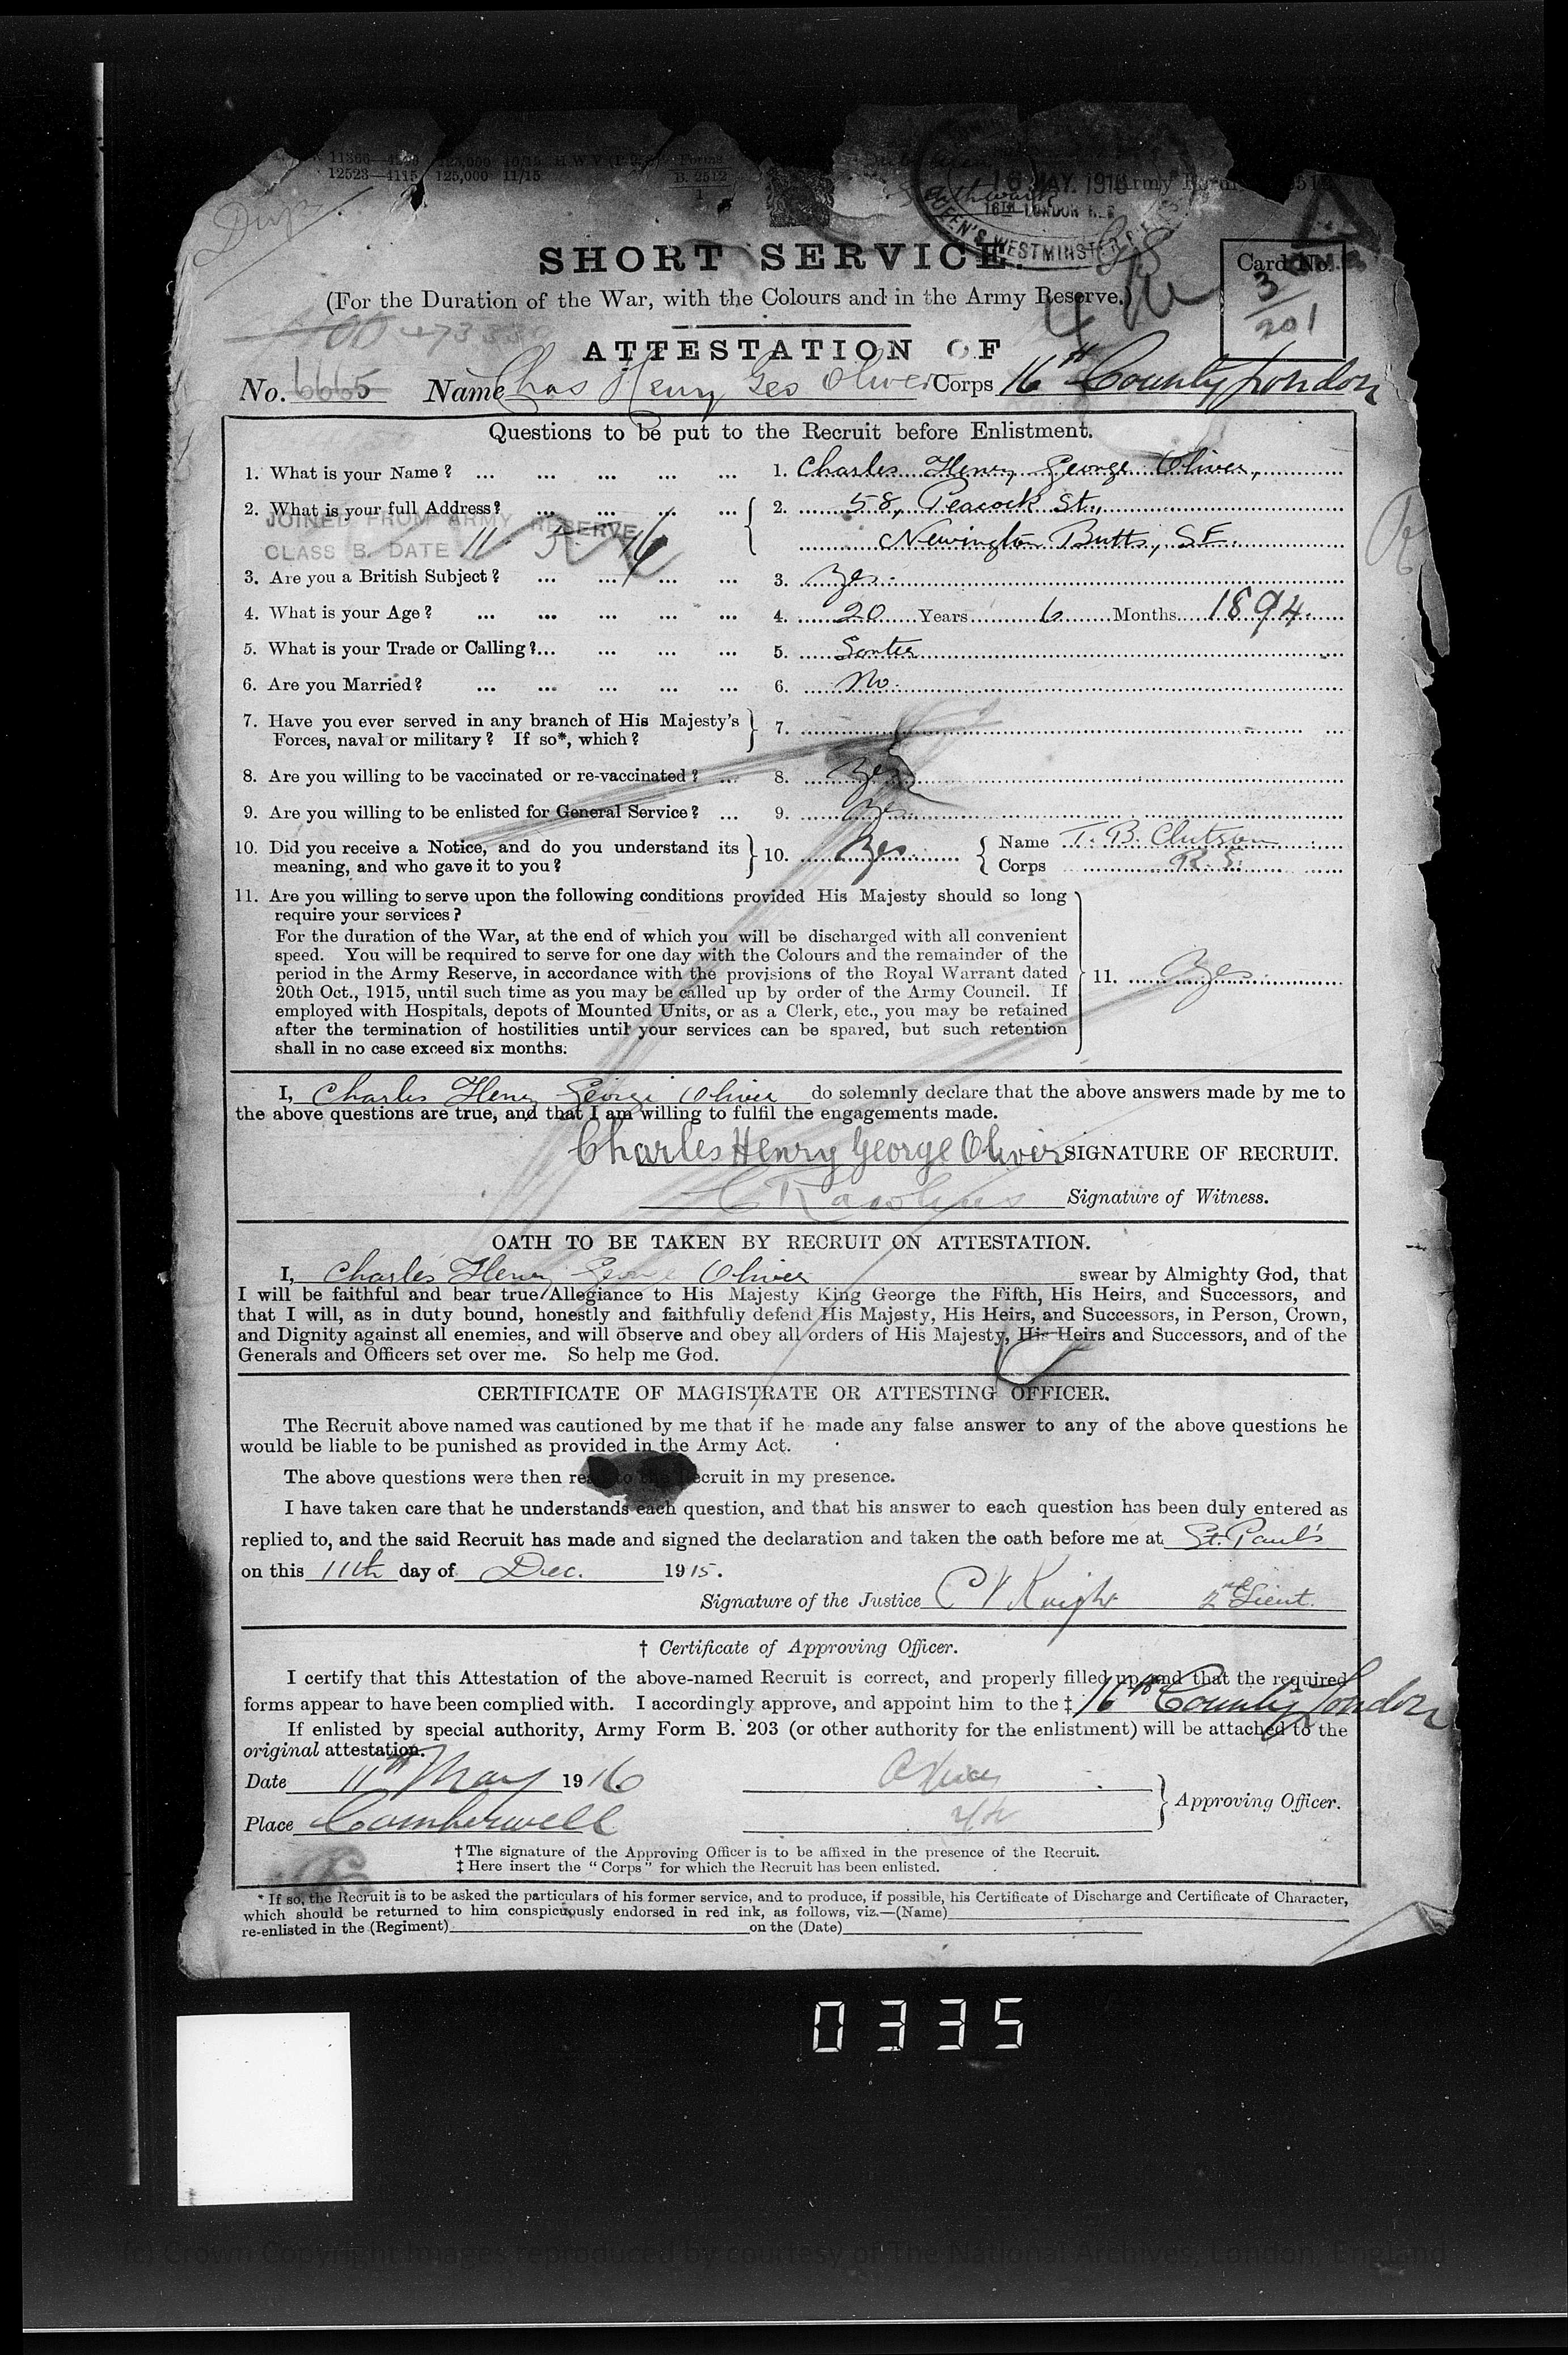 12523—4115 125,000 11/15
Forms
B. 2512
1
Dup.
16 MAY. 1916
16TH LONDON
QUEEN'S WESTMINSTER
Southwark
SHORT SERVICE.
(For the Duration of the War, with the Colours and in the Army Reserve.)
Card No.
3/201
ATTESTATION OF
No. 6665 Name Chas Henry Geo Oliver Corps 16th County London
Questions to be put to the Recruit before Enlistment.
1. What is your Name? ... ... ... ... ... 1. Charles Henry George Oliver,
2. What is your full Address? ... ... ... ... 2. 58, Peacock St.,
Newington Butts, S.E.
JOINED FROM ARMY RESERVE
CLASS B. DATE 11 5 16
3. Are you a British Subject? ... ... ... ... 3. Yes.
4. What is your Age? ... ... ... ... ... 4. 20 Years 6 Months 1894.
5. What is your Trade or Calling?... ... ... ... 5.
6. Are you Married? ... ... ... ... ... 6. No.
7. Have you ever served in any branch of His Majesty's
Forces, naval or military? If so*, which? 7.
8. Are you willing to be vaccinated or re-vaccinated? ... 8. Yes
9. Are you willing to be enlisted for General Service? ... 9. Yes
10. Did you receive a Notice, and do you understand its
meaning, and who gave it to you? 10. Yes Name T. B. Clutson
Corps R. E.
11. Are you willing to serve upon the following conditions provided His Majesty should so long
require your services?
For the duration of the War, at the end of which you will be discharged with all convenient
speed. You will be required to serve for one day with the Colours and the remainder of the
period in the Army Reserve, in accordance with the provisions of the Royal Warrant dated
20th Oct., 1915, until such time as you may be called up by order of the Army Council. If
employed with Hospitals, depots of Mounted Units, or as a Clerk, etc., you may be retained
after the termination of hostilities until your services can be spared, but such retention
shall in no case exceed six months.
11. Yes
I, Charles Henry George Oliver do solemnly declare that the above answers made by me to
the above questions are true, and that I am willing to fulfil the engagements made.
Charles Henry George Oliver SIGNATURE OF RECRUIT.
Signature of Witness.
OATH TO BE TAKEN BY RECRUIT ON ATTESTATION.
I, Charles Henry George Oliver swear by Almighty God, that
I will be faithful and bear true Allegiance to His Majesty King George the Fifth, His Heirs, and Successors, and
that I will, as in duty bound, honestly and faithfully defend His Majesty, His Heirs, and Successors, in Person, Crown,
and Dignity against all enemies, and will observe and obey all orders of His Majesty, His Heirs and Successors, and of the
Generals and Officers set over me. So help me God.
CERTIFICATE OF MAGISTRATE OR ATTESTING OFFICER.
The Recruit above named was cautioned by me that if he made any false answer to any of the above questions he
would be liable to be punished as provided in the Army Act.
The above questions were then read to the Recruit in my presence.
I have taken care that he understands each question, and that his answer to each question has been duly entered as
replied to, and the said Recruit has made and signed the declaration and taken the oath before me at St. Paul's
on this 11th day of Dec. 1915.
Signature of the Justice C V Knight 2nd Lieut.
† Certificate of Approving Officer.
I certify that this Attestation of the above-named Recruit is correct, and properly filled up, and that the required
forms appear to have been complied with. I accordingly approve, and appoint him to the ‡ 16th County London
If enlisted by special authority, Army Form B. 203 (or other authority for the enlistment) will be attached to the
original attestation.
Date 11th May 1916
Place Camberwell
Approving Officer.
† The signature of the Approving Officer is to be affixed in the presence of the Recruit.
‡ Here insert the "Corps" for which the Recruit has been enlisted.
* If so, the Recruit is to be asked the particulars of his former service, and to produce, if possible, his Certificate of Discharge and Certificate of Character,
which should be returned to him conspicuously endorsed in red ink, as follows, viz.—(Name)
re-enlisted in the (Regiment) on the (Date)
0335
(c) Crown Copyright Images reproduced by courtesy of The National Archives, London, England